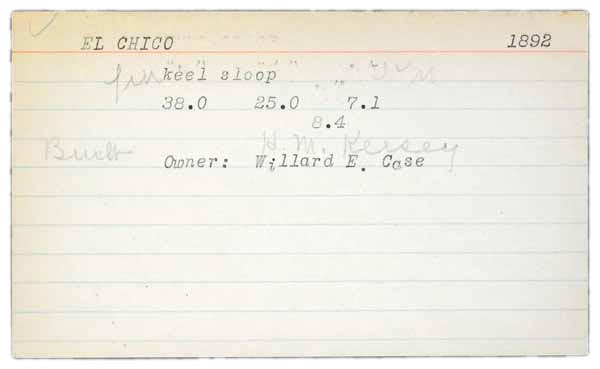 EL CHICO 1892
keel sloop
38.0 25.0 7.1
8.4
Built H. M. Kersey
Owner: Willard E. Case